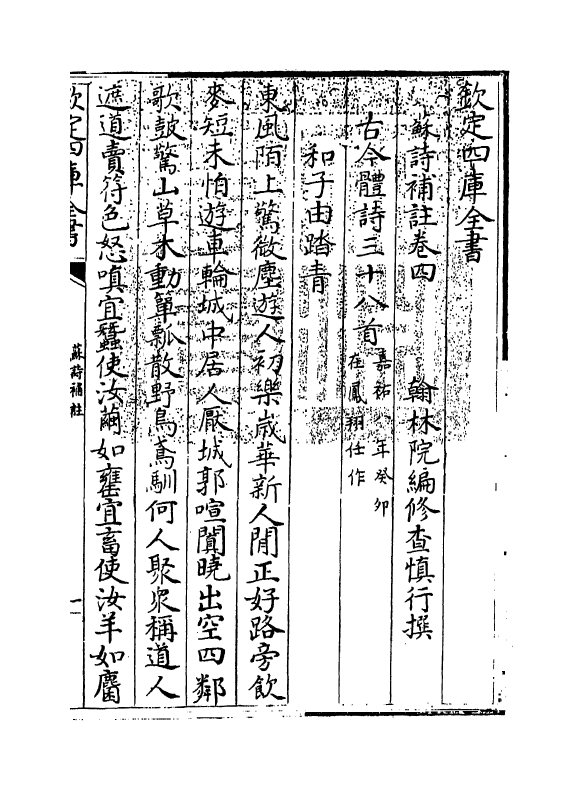 欽定四庫全書
蘇詩補註卷四
翰林院編修查慎行撰
古今體詩三十八首嘉祐八年癸卯在鳳翔任作
和子由踏青
東風陌上驚微塵遊人初樂歲華新人閒正好路旁飲
麥短未怕遊車輪城中居人厭城郭喧闐曉出空四鄰
歌鼓驚山草木動簞瓢散野鳥鳶馴何人聚衆稱道人
遮道賣符色怒嗔宜蠶使汝繭如甕宜畜使汝羊如麕
欽定四庫全書
蘇詩補註
一